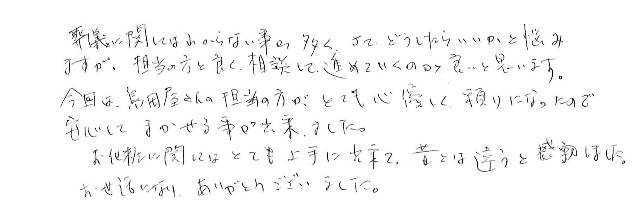 葬儀に関してはわからない事が多く、さて、どうしたらいいかと悩み
ますが、担当の方と良く相談して進めていくのが良いと思います。
今回は、鳥田屋さんの担当の方が、とても心優しく、頼りになったので
安心してまかせる事が出来ました。
お化粧に関してはとても上手に出来て、昔とは違うと感動しました。
お世話になり、ありがとうございました。